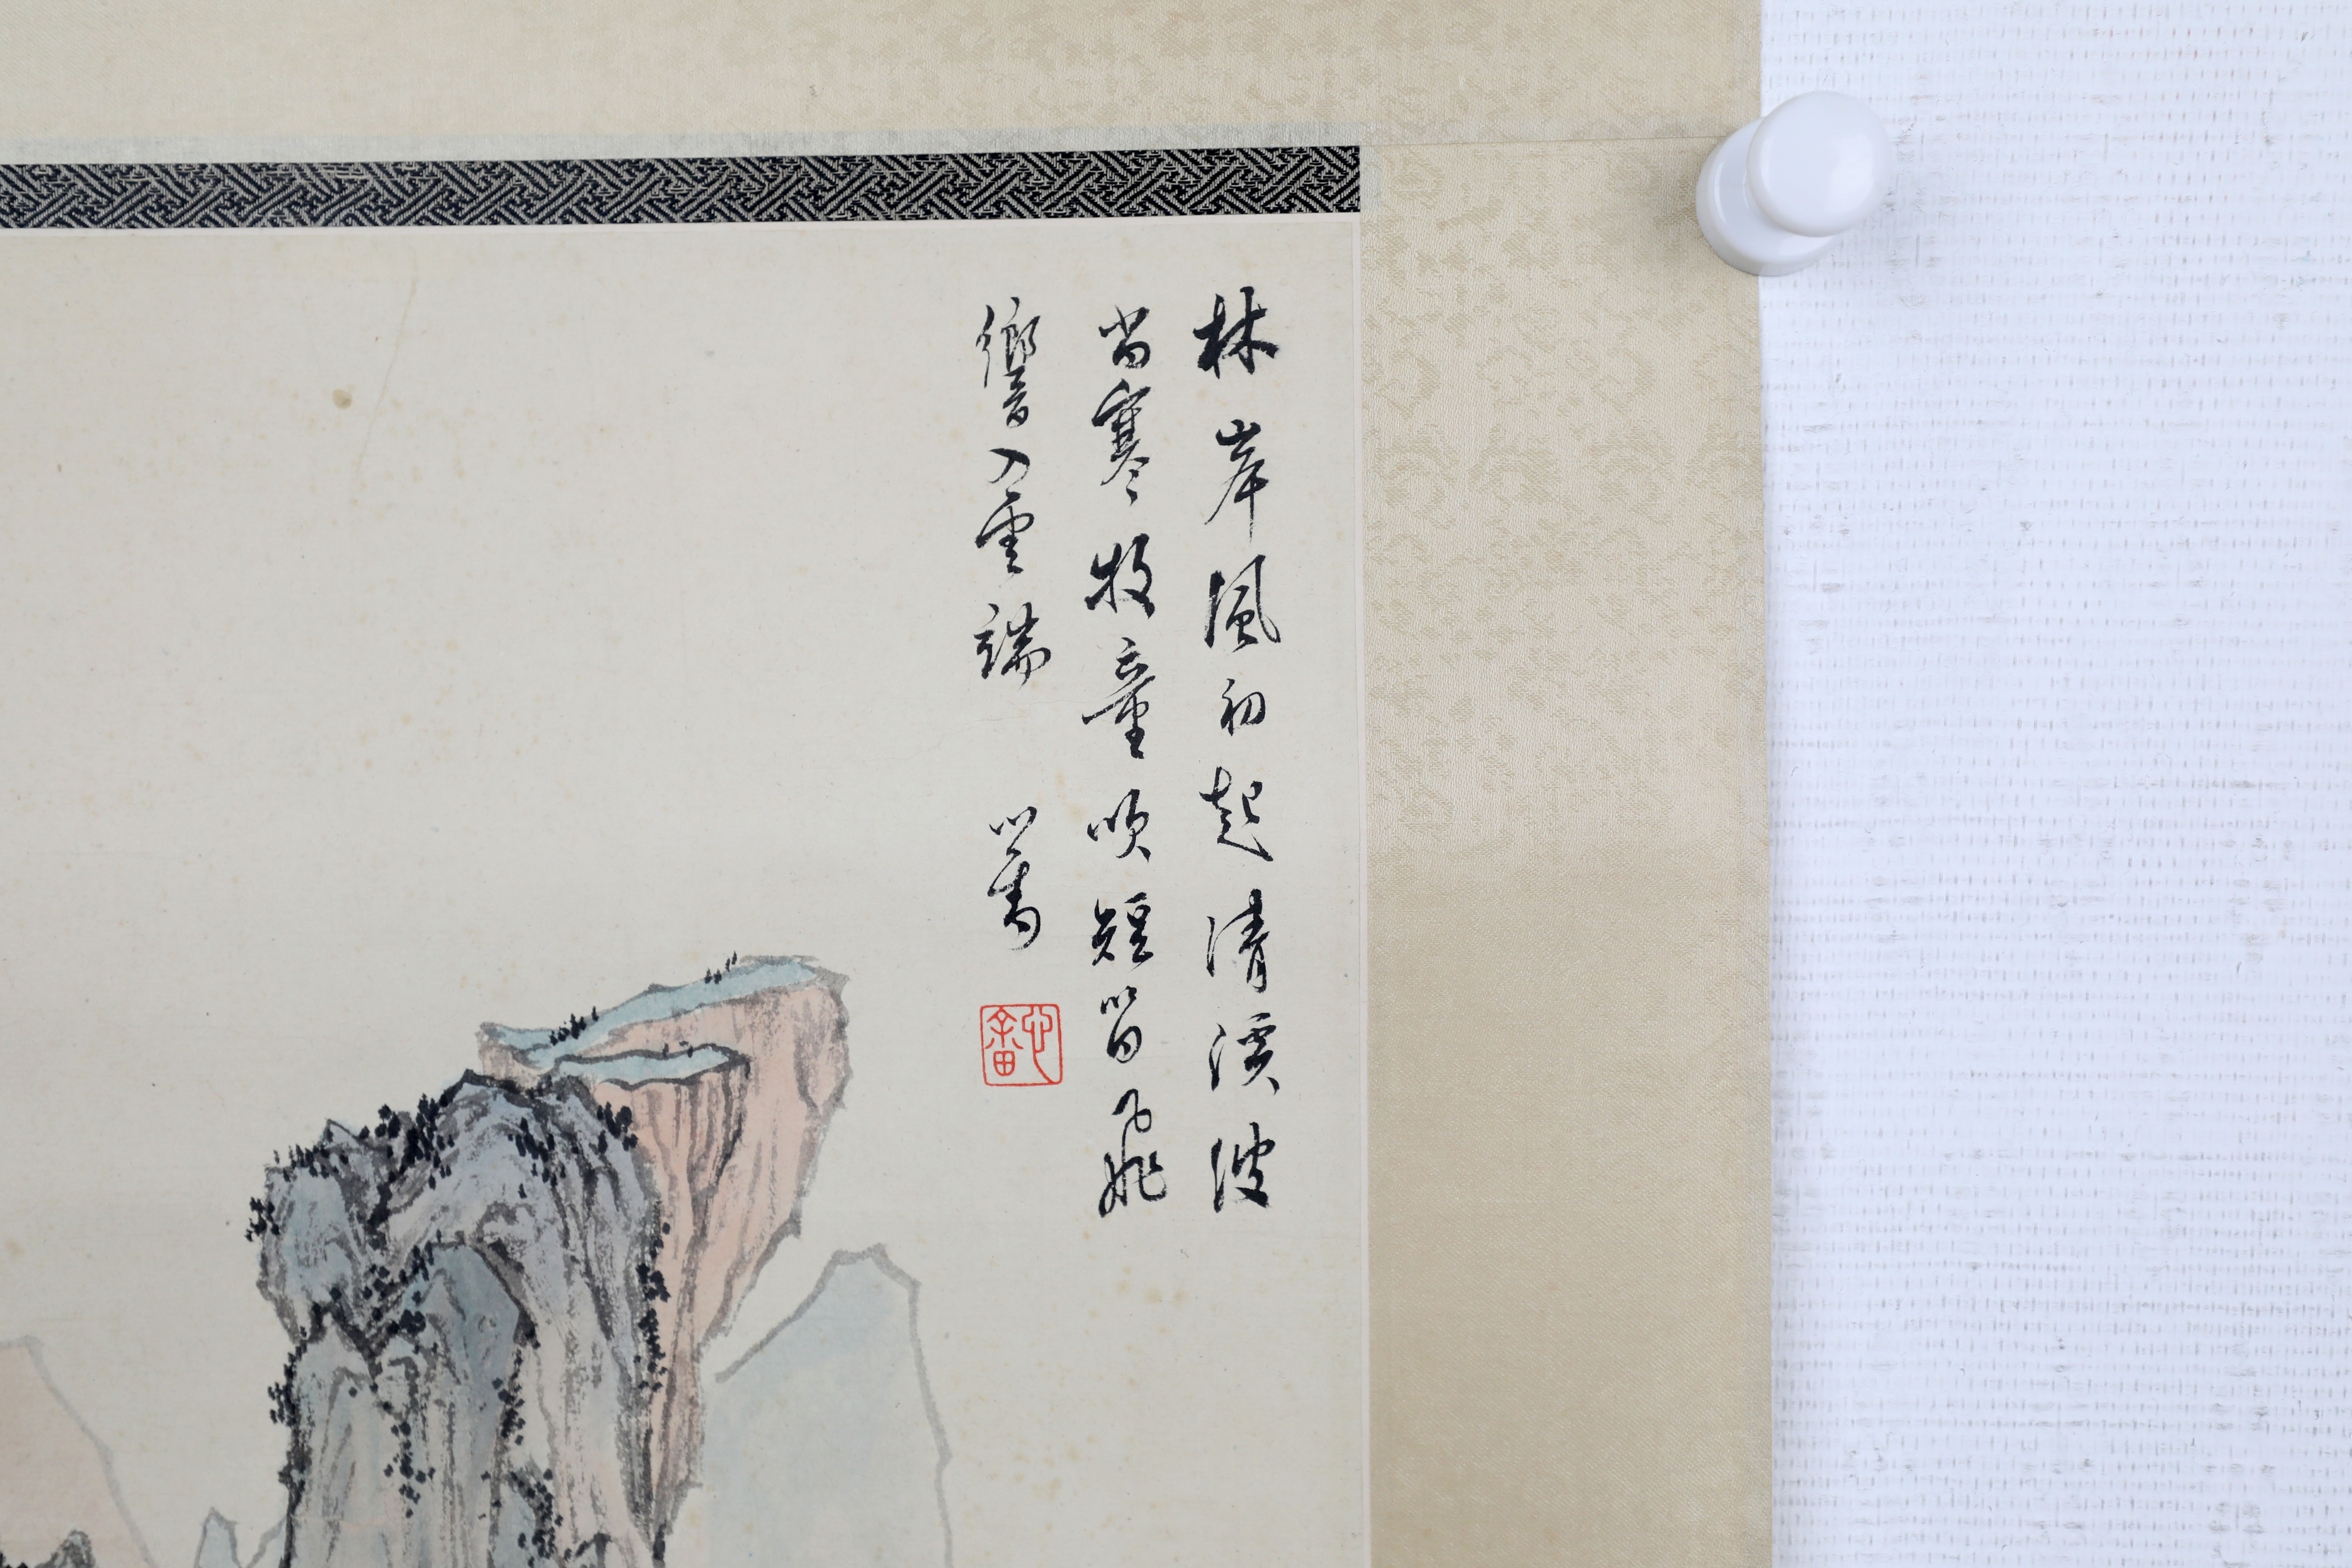 林岸風初起清溪波
尚寒牧童吹短笛飛
響入雲端 心畬
心畬